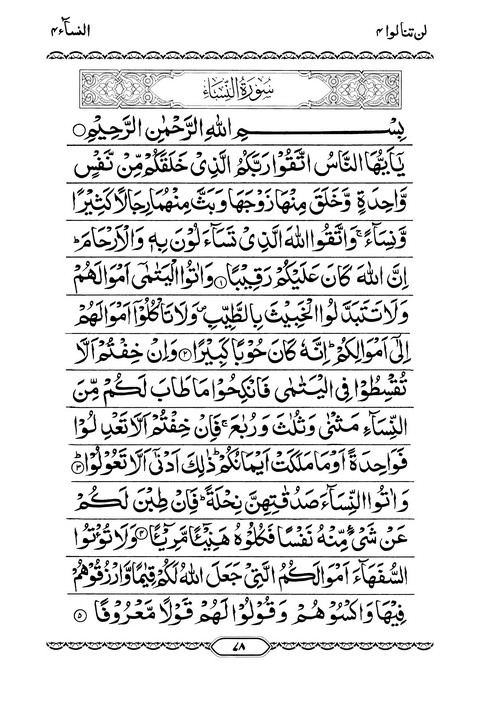 لن تنالوا ۴
النسآء ۴
سُوْرَةُ النِّسَآءِ
بِسْمِ اللّٰهِ الرَّحْمٰنِ الرَّحِيْمِ ○
يٰۤاَيُّهَا النَّاسُ اتَّقُوْا رَبَّكُمُ الَّذِىْ خَلَقَكُمْ مِّنْ نَّفْسٍ
وَّاحِدَةٍ وَّخَلَقَ مِنْهَا زَوْجَهَا وَبَثَّ مِنْهُمَا رِجَالًا كَثِيْرًا
وَّنِسَآءً ۚ وَاتَّقُوا اللّٰهَ الَّذِىْ تَسَآءَلُوْنَ بِهٖ وَالْاَرْحَامَ ؕ
اِنَّ اللّٰهَ كَانَ عَلَيْكُمْ رَقِيْبًا ۱ وَاٰتُوا الْيَتٰمٰٓى اَمْوَالَهُمْ
وَلَا تَتَبَدَّلُوا الْخَبِيْثَ بِالطَّيِّبِ ۪ وَلَا تَاْكُلُوْۤا اَمْوَالَهُمْ
اِلٰٓى اَمْوَالِكُمْ ؕ اِنَّهٗ كَانَ حُوْبًا كَبِيْرًا ۲ وَاِنْ خِفْتُمْ اَلَّا
تُقْسِطُوْا فِى الْيَتٰمٰى فَانْكِحُوْا مَا طَابَ لَكُمْ مِّنَ
النِّسَآءِ مَثْنٰى وَثُلٰثَ وَرُبٰعَ ۚ فَاِنْ خِفْتُمْ اَلَّا تَعْدِلُوْا
فَوَاحِدَةً اَوْ مَا مَلَكَتْ اَيْمَانُكُمْ ؕ ذٰلِكَ اَدْنٰٓى اَلَّا تَعُوْلُوْا ؕ ۳
وَاٰتُوا النِّسَآءَ صَدُقٰتِهِنَّ نِحْلَةً ؕ فَاِنْ طِبْنَ لَكُمْ
عَنْ شَىْءٍ مِّنْهُ نَفْسًا فَكُلُوْهُ هَنِيْٓـًٔا مَّرِيْٓـًٔا ۴ وَلَا تُؤْتُوا
السُّفَهَآءَ اَمْوَالَكُمُ الَّتِىْ جَعَلَ اللّٰهُ لَكُمْ قِيٰمًا وَّارْزُقُوْهُمْ
فِيْهَا وَاكْسُوْهُمْ وَقُوْلُوْا لَهُمْ قَوْلًا مَّعْرُوْفًا ۵
۷۸